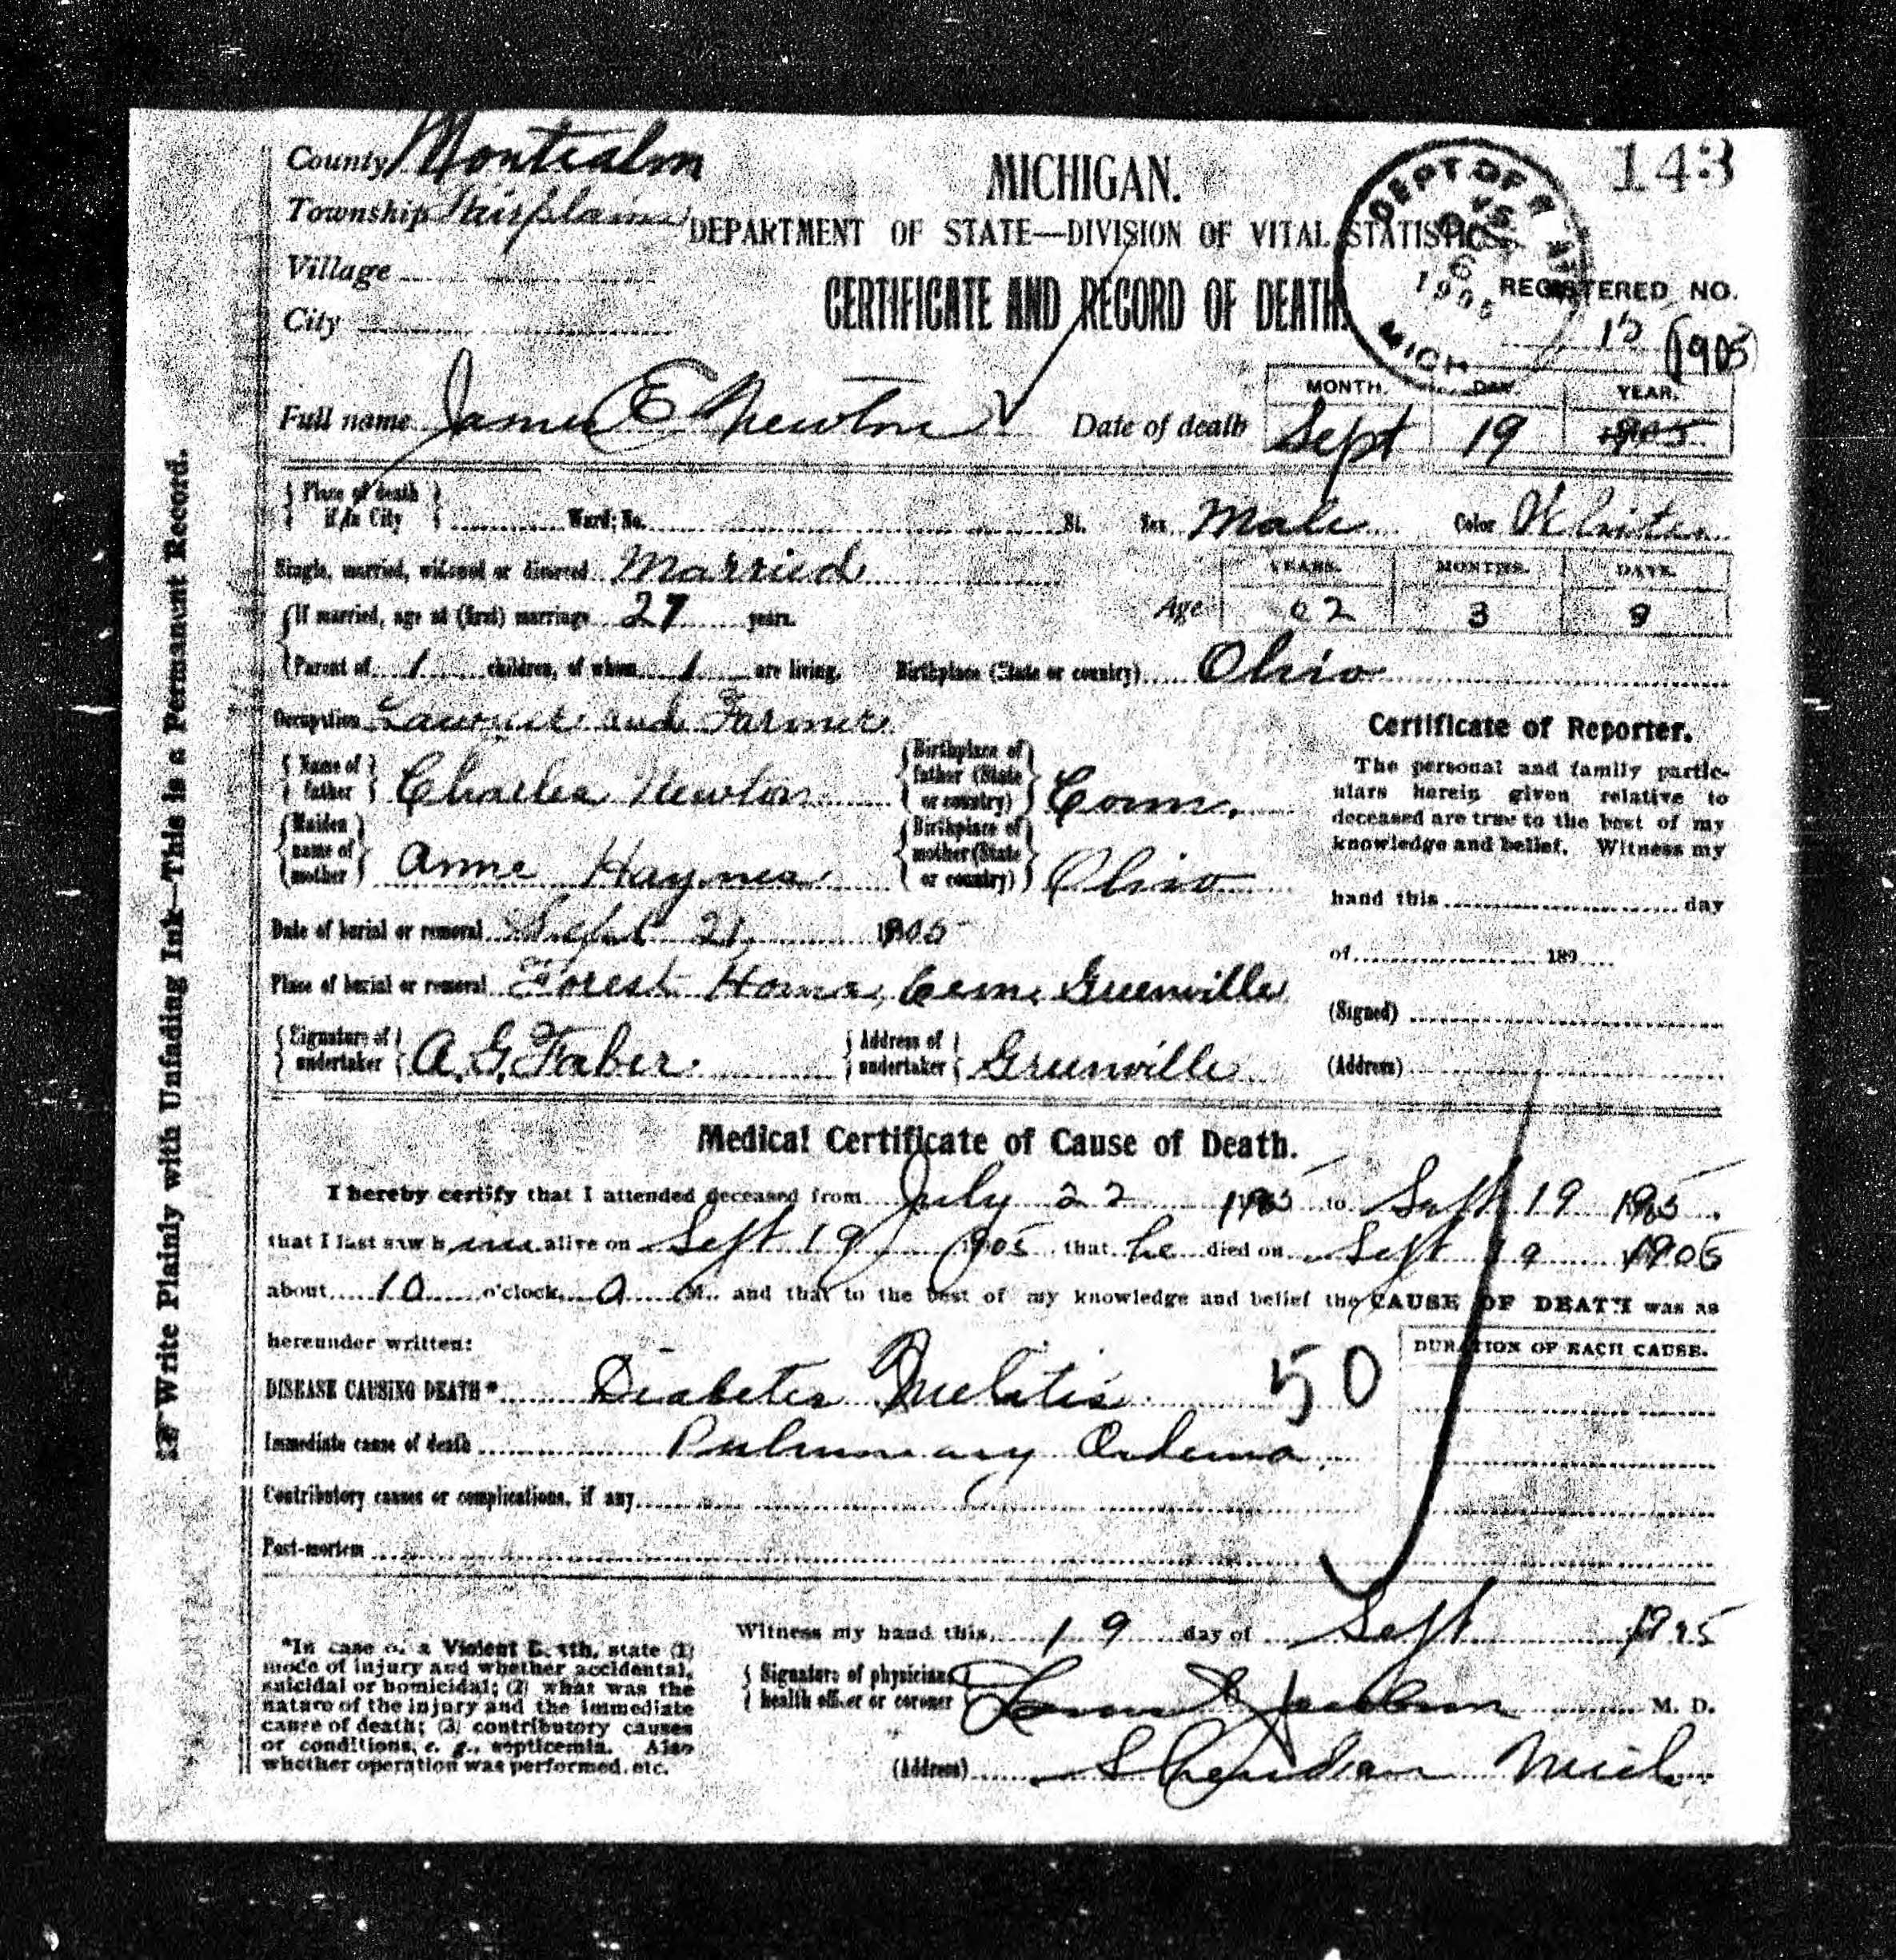 143
County Montcalm
MICHIGAN.
Township Fairplain
DEPARTMENT OF STATE—DIVISION OF VITAL STATISTICS
DEPT OF
6
1905
MICH
Village
CERTIFICATE AND RECORD OF DEATH
REGISTERED NO.
City
(1905)
Full name James E Newton Date of death
MONTH. DAY. YEAR.
Sept 19 1905
Place of death if in City Ward; No. St. Sex Male Color White
Single, married, widowed or divorced Married
YEARS. MONTHS. DAYS.
If married, age at (first) marriage 27 years.
Age 62 3 9
Parent of 1 children, of whom 1 are living. Birthplace (State or country) Ohio
Occupation and Farmer
Name of father Charles Newton Birthplace of father (State or country) Conn.
Maiden name of mother Anne Haynes Birthplace of mother (State or country) Ohio
Date of burial or removal Sept 21 1905
Place of burial or removal Forest Home Cem. Greenville
Signature of undertaker A. G. Faber Address of undertaker Greenville
Certificate of Reporter.
The personal and family partic-
ulars herein given relative to
deceased are true to the best of my
knowledge and belief. Witness my
hand this day
of 189
(Signed)
(Address)
Medical Certificate of Cause of Death.
I hereby certify that I attended deceased from July 22 1905 to Sept 19 1905.
that I last saw him alive on Sept 19 1905, that he died on Sept 19 1905
about 10 o'clock, a M., and that to the best of my knowledge and belief the CAUSE OF DEATH was as
hereunder written:
DURATION OF EACH CAUSE.
DISEASE CAUSING DEATH* Diabetes Melitis 50
Immediate cause of death Pulmonary Oedema
Contributory causes or complications, if any
Post-mortem
*In case of a Violent Death, state (1)
mode of injury and whether accidental,
suicidal or homicidal; (2) what was the
nature of the injury and the immediate
cause of death; (3) contributory causes
or conditions, e. g., septicemia. Also
whether operation was performed, etc.
Witness my hand this 19 day of Sept 1905
Signature of physician, health officer or coroner M. D.
(Address) Sheridan Mich
Write Plainly with Unfading Ink—This is a Permanent Record.